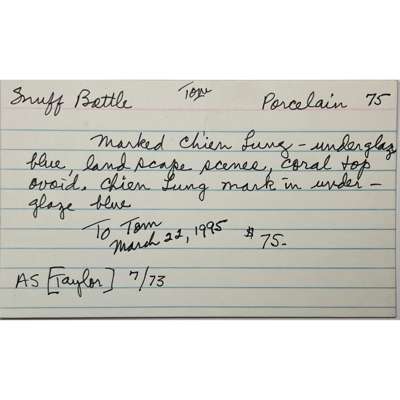 Snuff Bottle Tom Porcelain 75
Marked Ch'ien Lung - underglaze
blue, land scape scenes, coral top
ovoid. Chien Lung mark in under -
glaze blue
To Tom
March 22, 1995 $75-
AS [Taylor] 7/73